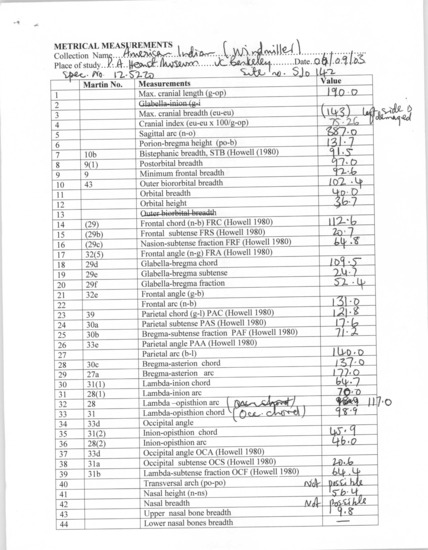 METRICAL MEASUREMENTS
Collection Name American Indian (Windmiller)
Place of study P.A. Hearst Museum UC Berkeley Date 06/09/03
Spec. No 12-5220 Site no. SJo 142
Martin No. Measurements Value
1 Max. cranial length (g-op) 190.0
2 Glabella-inion (g-i
3 Max. cranial breadth (eu-eu) (143) Left side damaged
4 Cranial index (eu-eu x 100/g-op) 75.26
5 Sagittal arc (n-o) 387.0
6 Porion-bregma height (po-b) 131.7
7 10b Bistephanic breadth, STB (Howell (1980) 91.5
8 9(1) Postorbital breadth 97.0
9 9 Minimum frontal breadth 92.6
10 43 Outer biororbital breadth 102.4
11 Orbital breadth 40.0
12 Orbital height 36.7
13 Outer biorbital breadth
14 (29) Frontal chord (n-b) FRC (Howell 1980) 112.6
15 (29b) Frontal subtense FRS (Howell 1980) 20.7
16 (29c) Nasion-subtense fraction FRF (Howell 1980) 64.8
17 32(5) Frontal angle (n-g) FRA (Howell 1980)
18 29d Glabella-bregma chord 109.5
19 29e Glabella-bregma subtense 24.7
20 29f Glabella-bregma fraction 52.4
21 32e Frontal angle (g-b)
22 Frontal arc (n-b) 131.0
23 39 Parietal chord (g-l) PAC (Howell 1980) 121.8
24 30a Parietal subtense PAS (Howell 1980) 17.6
25 30b Bregma-subtense fraction PAF (Howell 1980) 71.2
26 33e Parietal angle PAA (Howell 1980)
27 Parietal arc (b-l) 140.0
28 30c Bregma-asterion chord 137.0
29 27a Bregma-asterion arc 177.0
30 31(1) Lambda-inion chord 64.7
31 28(1) Lambda-inion arc 70.0
32 28 Lambda -opisthion arc 98.9 117.0
33 31 Lambda-opisthion chord (Occ chord) 98.9
34 33d Occipital angle
35 31(2) Inion-opisthion chord 45.9
36 28(2) Inion-opisthion arc 46.0
37 33d Occipital angle OCA (Howell 1980)
38 31a Occipital subtense OCS (Howell 1980) 20.6
39 31b Lambda-subtense fraction OCF (Howell 1980) 64.4
40 Transversal arch (po-po) Not possible
41 Nasal height (n-ns) 56.4
42 Nasal breadth Not possible
43 Upper nasal bone breadth 9.8
44 Lower nasal bones breadth —